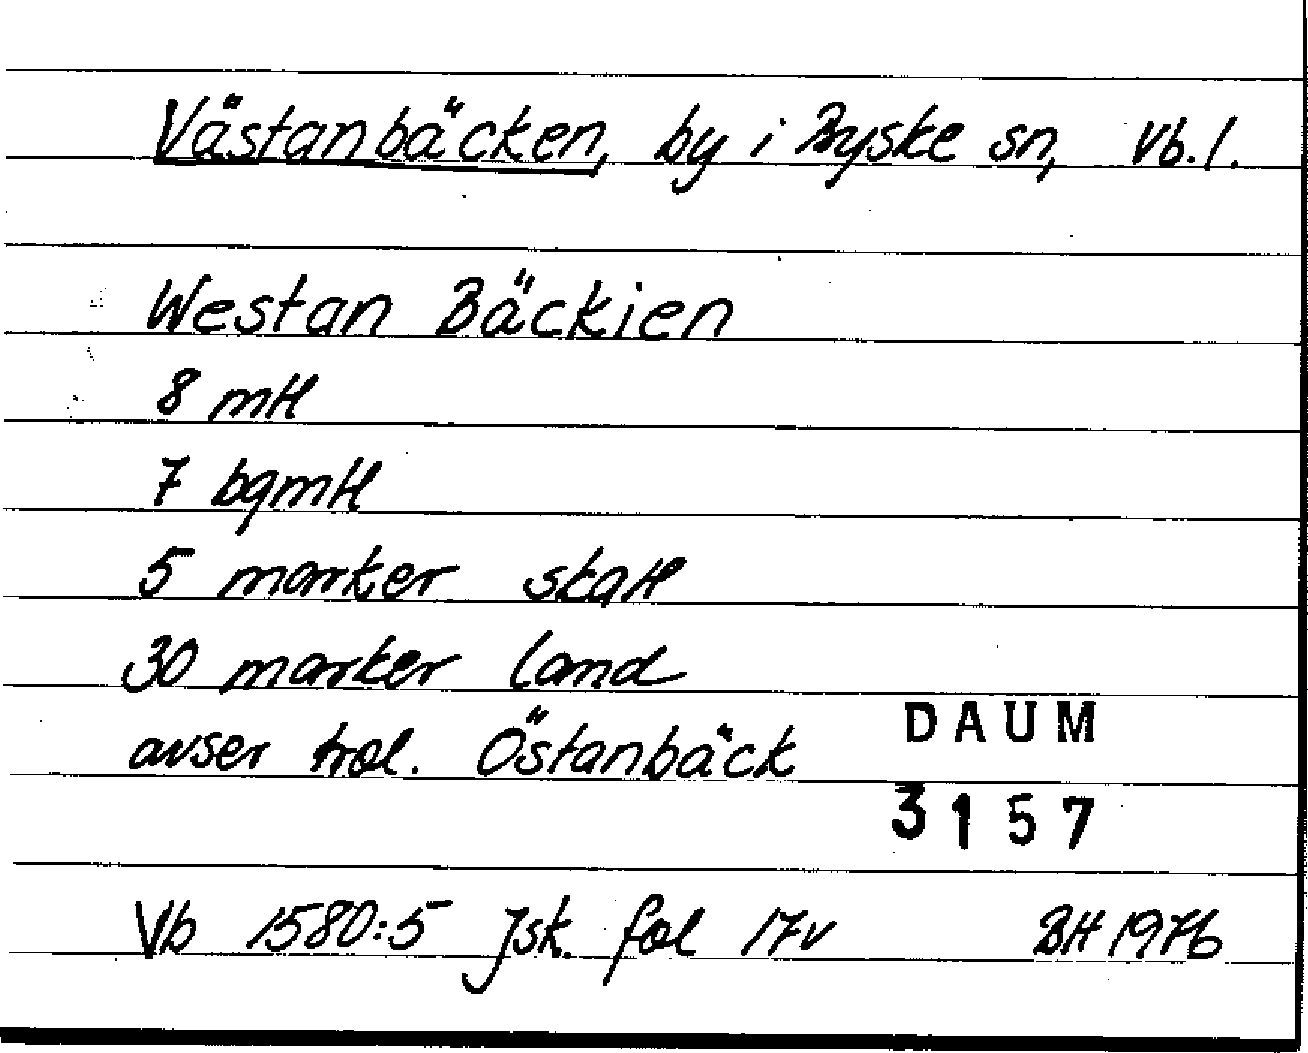 Västanbäcken, by i Byske sn, Vb.l.
Westan Bäckien
8 mtl
7 bgmtl
5 marker skatt
30 marker land
avser trol. Östanbäck
DAUM
3157
Vb 1580:5 Jsk. fol 17v BH 1976